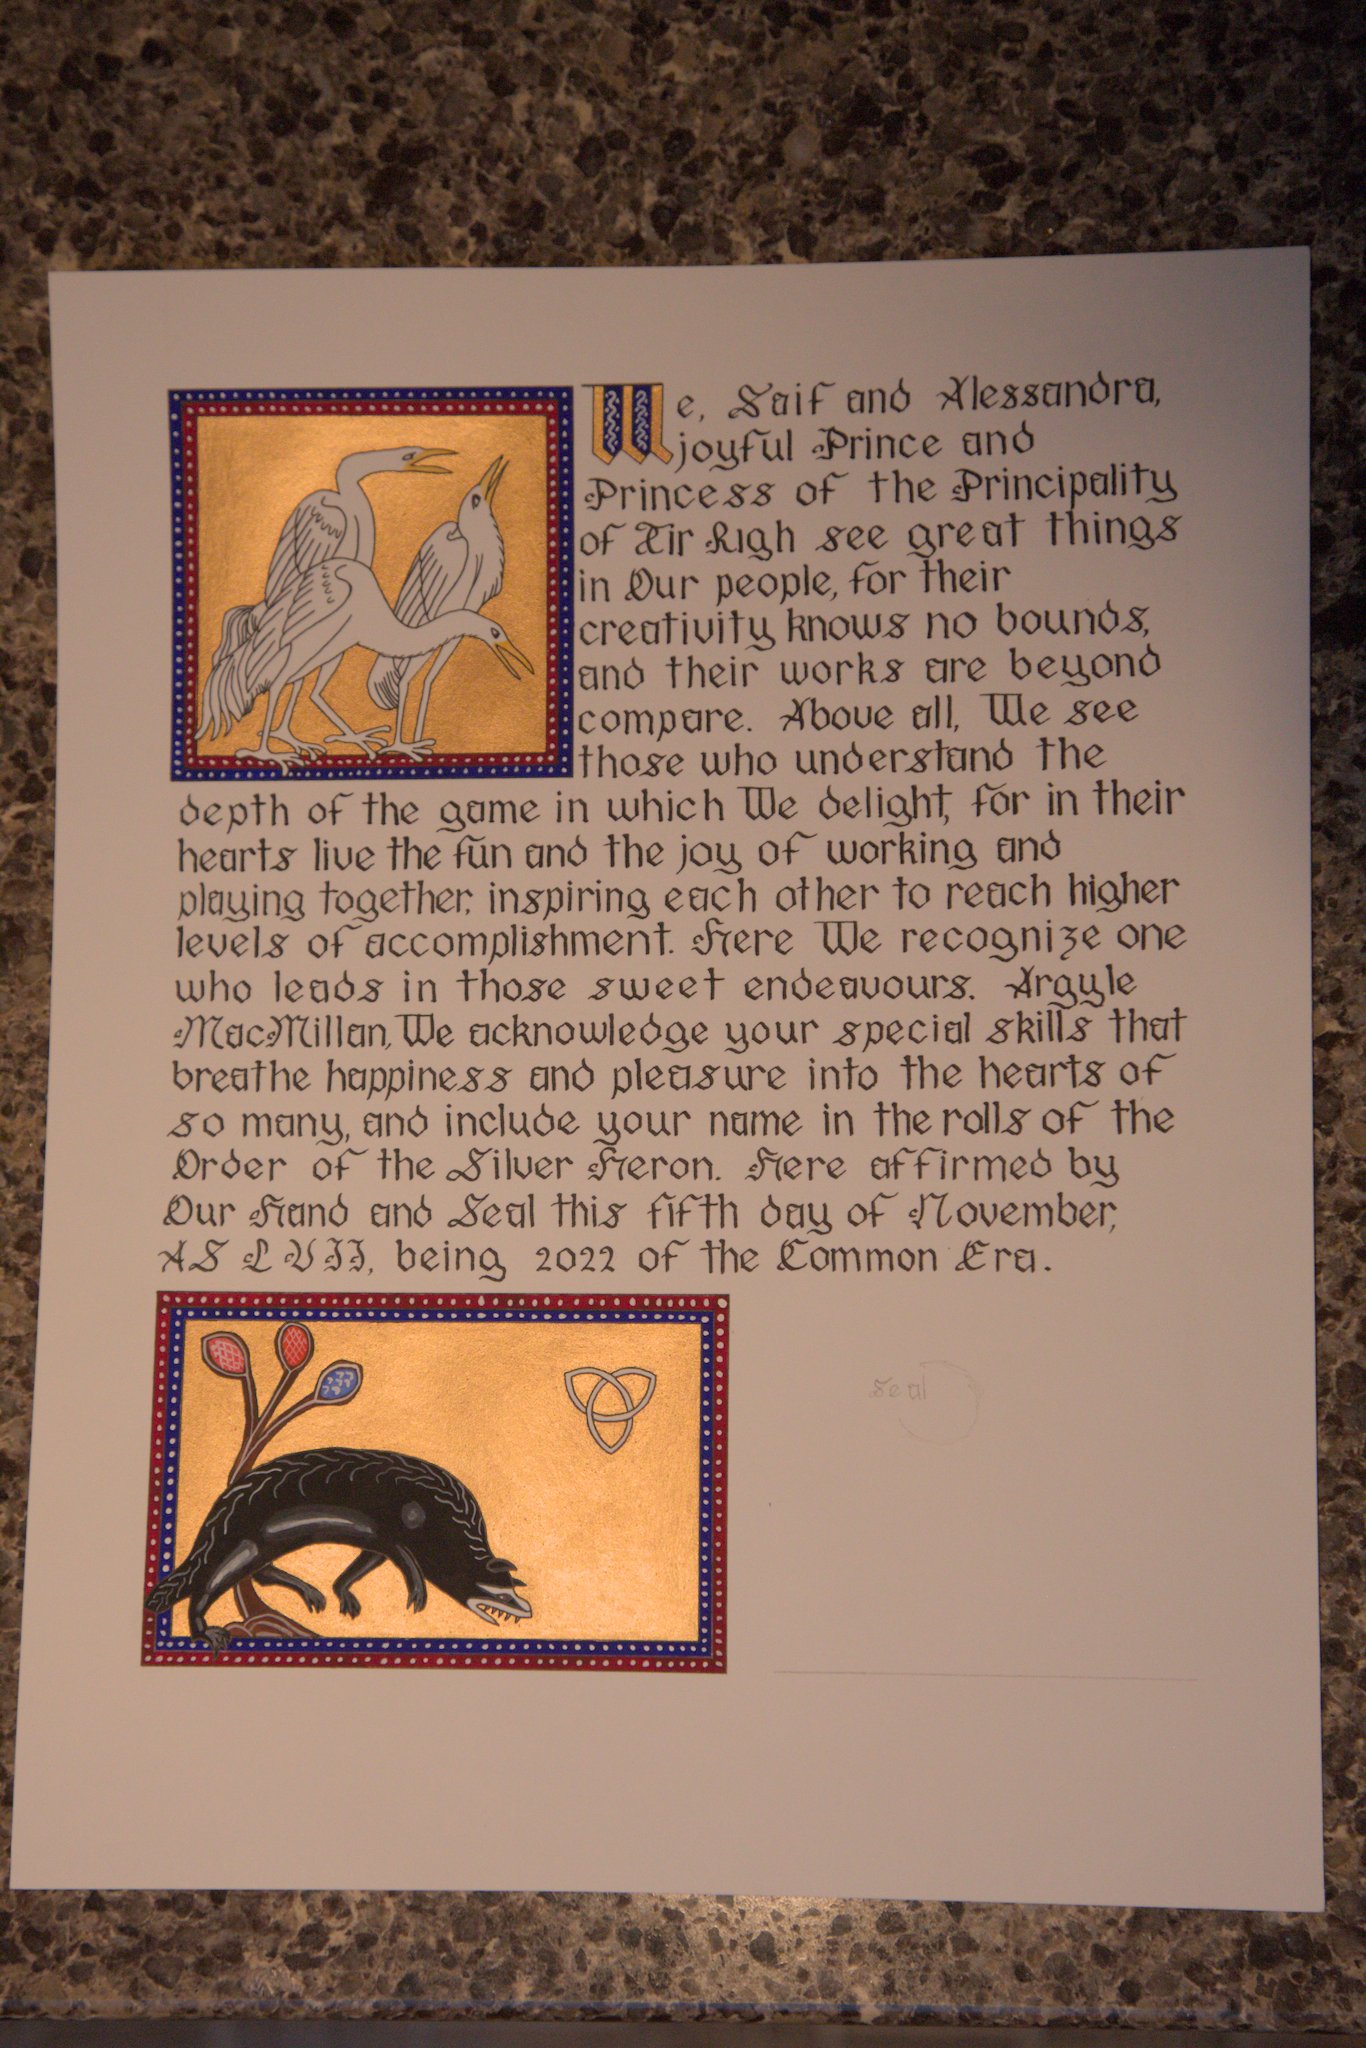 We, Saif and Alessandra,
joyful Prince and
Princess of the Principality
of Tir Righ see great things
in Our people, for their
creativity knows no bounds,
and their works are beyond
compare. Above all, We see
those who understand the
depth of the game in which We delight, for in their
hearts live the fun and the joy of working and
playing together, inspiring each other to reach higher
levels of accomplishment. Here We recognize one
who leads in those sweet endeavours. Argyle
MacMillan, We acknowledge your special skills that
breathe happiness and pleasure into the hearts of
so many, and include your name in the rolls of the
Order of the Silver Heron. Here affirmed by
Our Hand and Seal this fifth day of November,
AS LVII, being 2022 of the Common Era.
Seal